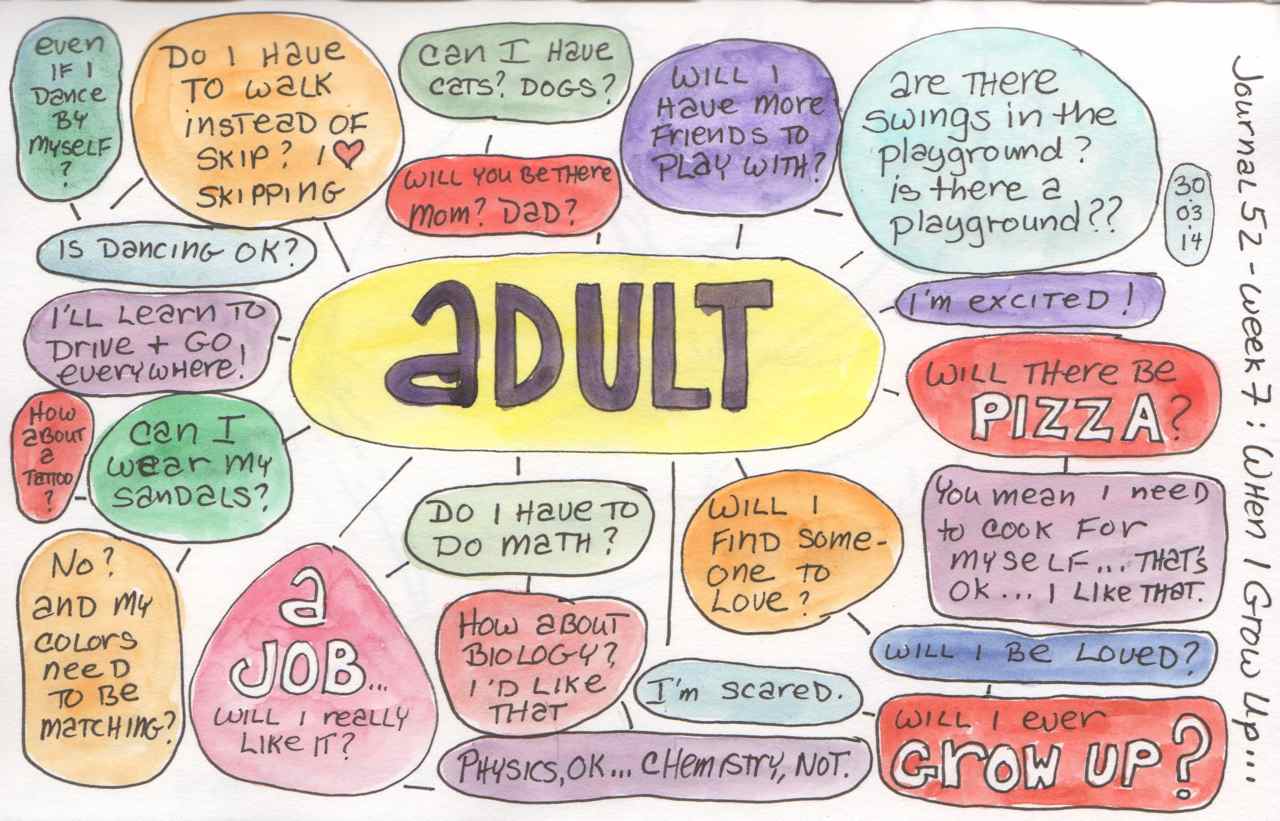 even
IF I
Dance
BY
myself
?
Do I Have
TO walk
insTeaD OF
SKIP? I ♥
SKIPPING
Can I Have
caTs? DOGS?
WILL YOU Be THere
mom? DaD?
WILL I
Have more
Friends TO
PLaY WITH?
are THere
swings in the
playground?
is there a
playground??
30
03
14
Journal 52 - week 7: WHen I Grow Up...
Is Dancing OK?
I'll Learn TO
Drive + GO
everywhere!
aDULT
I'm excited!
WILL THere Be
PIZZA?
How
aBOUT
a
TaTTOO
?
can I
wear my
sandals?
You mean I neeD
to cook For
myself... THaT's
OK... I Like THaT.
Do I Have TO
DO maTH?
WILL I
FinD some-
one TO
Love?
No?
anD my
COLORS
neeD
TO Be
maTCHING?
a
JOB...
WILL I really
Like IT?
How aBOUT
BIOLOGY?
I'D LIKe
THaT
WILL I Be Loved?
I'm scareD.
WILL I ever
Grow UP?
PHYSICS, OK... CHemISTRY, NOT.